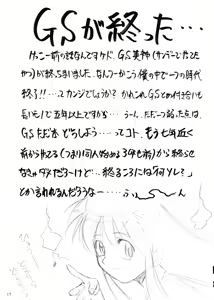 GSが終った…
けっこー前の話なんですケド、GS美神(サンデーでやってた
やつ)が終っちまいました。なんつーかこう僕の中で一つの時代
終る!!…ってカンジでしょうか?かれこれGSとの付き合いも
長いモノで五年以上ですから…うーん。ただ一つ困った点は、
GSただ本どうしよう…ってコト、もう七年近く
前から
(つまり同人始める3年も前)から終らせ
なきゃダメだろーけど…終るころには「何ソレ?」
とか言われるんだろうなー……ふぅ〜〜ん